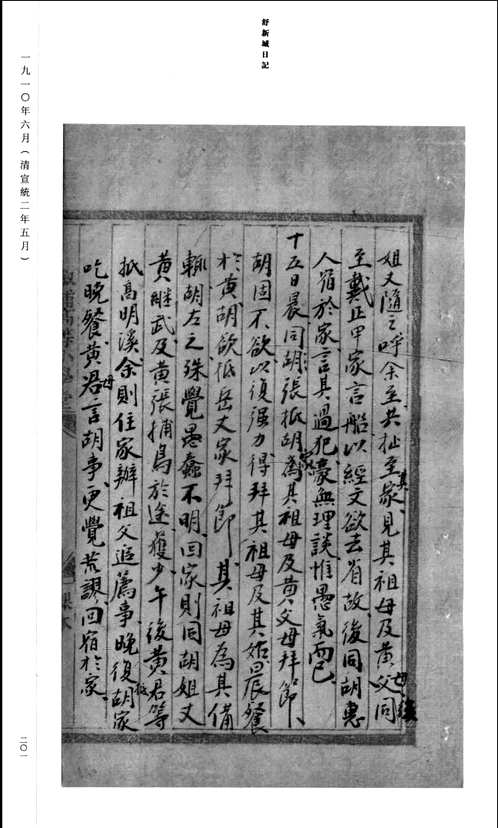 舒新城日記
一九一〇年六月（清宣統二年五月）
姐丈隨之呼余至共抵至其家見其祖母及黃父母同
至戴正甲家言船以經文欲去省故後同胡惠
人宿於家言其過犯毫無理談惟愚氣而已
十五日晨同胡張抵胡家為其祖母及黃父母拜節
胡固不欲以復强力得拜其祖母及其姑晨餐
於黃胡欲抵岳丈家拜節其祖母為其備
轎胡左之殊覺愚蠢不明回家則同胡姐丈
黃繼武及黃張捕鳥於途獲少午後黃君等
抵高明溪余則住家辦祖父追薦事晚復胡家
吃晚餐黃君母言胡事更覺荒謬回宿於家
二〇一